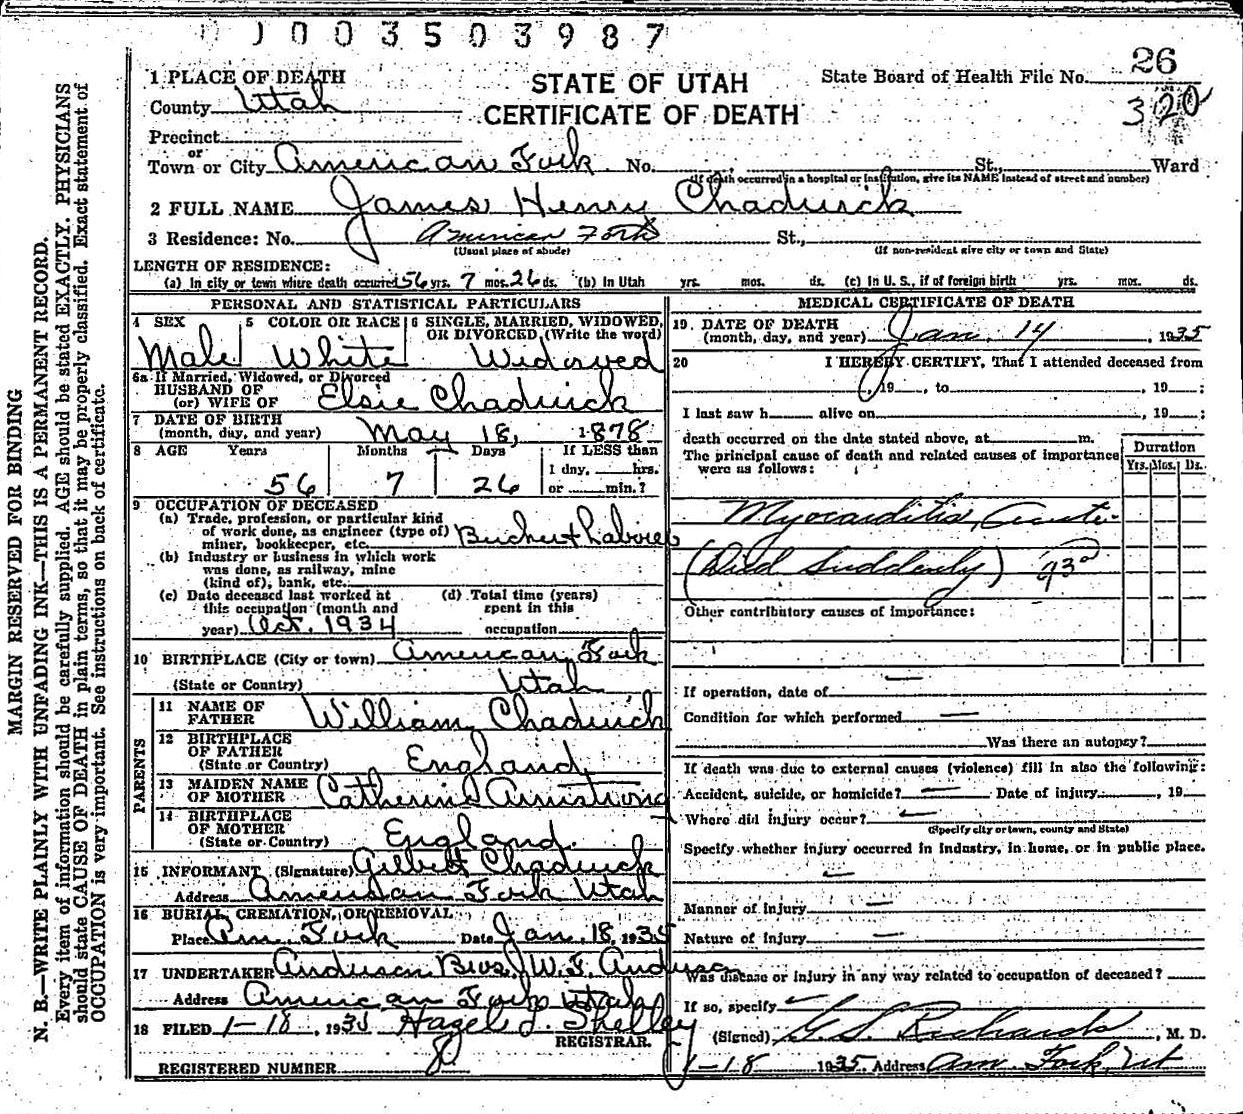 003503987
1 PLACE OF DEATH
STATE OF UTAH
CERTIFICATE OF DEATH
State Board of Health File No. 26
320
County Utah
Precinct
or
Town or City American Fork No. St., Ward
(If death occurred in a hospital or institution, give its NAME instead of street and number)
2 FULL NAME James Henry Chadwick
3 Residence: No. American Fork St.,
(Usual place of abode) (If non-resident give city or town and State)
LENGTH OF RESIDENCE:
(a) In city or town where death occurred 56 yrs. 7 mos. 26 ds. (b) In Utah yrs. mos. ds. (c) In U. S., if of foreign birth yrs. mos. ds.
PERSONAL AND STATISTICAL PARTICULARS
4 SEX Male
5 COLOR OR RACE White
6 SINGLE, MARRIED, WIDOWED, OR DIVORCED (Write the word) Widowed
6a If Married, Widowed, or Divorced
HUSBAND OF
(or) WIFE OF Elsie Chadwick
7 DATE OF BIRTH
(month, day, and year) May 18, 1878
8 AGE Years Months Days If LESS than
1 day, hrs.
56 7 26 or min.?
9 OCCUPATION OF DECEASED
(a) Trade, profession, or particular kind
of work done, as engineer (type of)
miner, bookkeeper, etc. Laborer
(b) Industry or business in which work
was done, as railway, mine
(kind of), bank, etc.
(c) Date deceased last worked at
this occupation (month and
year) Oct. 1934
(d) Total time (years)
spent in this
occupation
10 BIRTHPLACE (City or town) American Fork
(State or Country) Utah
PARENTS
11 NAME OF
FATHER William Chadwick
12 BIRTHPLACE
OF FATHER
(State or Country) England
13 MAIDEN NAME
OF MOTHER Catherine Armstrong
14 BIRTHPLACE
OF MOTHER
(State or Country) England.
15 INFORMANT (Signature) Gilbert Chadwick
Address American Fork Utah
16 BURIAL, CREMATION, OR REMOVAL
Place Am. Fork Date Jan. 18, 1935
17 UNDERTAKER Anderson Bros. W. F. Anderson
Address American Fork Utah
18 FILED 1-18, 1935 Hazel L. Shelley
REGISTRAR.
REGISTERED NUMBER
MEDICAL CERTIFICATE OF DEATH
19. DATE OF DEATH
(month, day, and year) Jan. 14, 1935
20 I HEREBY CERTIFY, That I attended deceased from
, 19 , to , 19 ;
I last saw h alive on , 19 ;
death occurred on the date stated above, at m.
The principal cause of death and related causes of importance
were as follows:
Duration
Yrs. Mos. Ds.
Myocarditis, Acute
(Died Suddenly)
Other contributory causes of importance:
If operation, date of —
Condition for which performed —
Was there an autopsy?
If death was due to external causes (violence) fill in also the following:
Accident, suicide, or homicide? — Date of injury , 19
Where did injury occur? —
(Specify city or town, county and State)
Specify whether injury occurred in industry, in home, or in public place.
—
Manner of injury —
Nature of injury —
Was disease or injury in any way related to occupation of deceased?
If so, specify
(Signed) G. S. Richards, M. D.
1-18 1935. Address Am. Fork, Ut
MARGIN RESERVED FOR BINDING
N. B.—WRITE PLAINLY WITH UNFADING INK—THIS IS A PERMANENT RECORD.
Every item of information should be carefully supplied. AGE should be stated EXACTLY. PHYSICIANS
should state CAUSE OF DEATH in plain terms, so that it may be properly classified. Exact statement of
OCCUPATION is very important. See instructions on back of certificate.